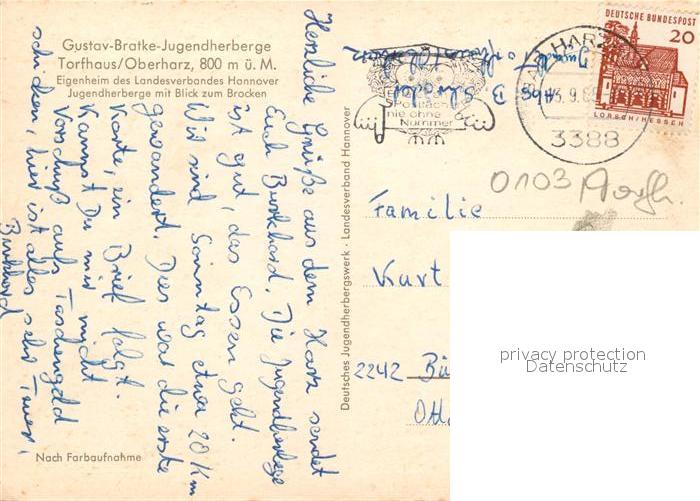 Gustav-Bratke-Jugendherberge
Torfhaus/Oberharz, 800 m ü. M.
Eigenheim des Landesverbandes Hannover
Jugendherberge mit Blick zum Brocken
Herzliche Grüße aus dem Harz sendet
Euch Burkhard. Die Jugendherberge
ist gut, das Essen geht.
Wir sind Sonntag etwa 20 Km
gewandert. Dies war die erste
Karte, ein Brief folgt.
Kannst Du mir nicht
Vorschuß aufs Taschengeld
schicken, hier ist alles sehr teuer.
Burkhard
Nach Farbaufnahme
Deutsches Jugendherbergswerk · Landesverband Hannover
Abs. B.
Postfach
nie ohne
Nummer
HARZ
3388
DEUTSCHE BUNDESPOST
20
LORSCH/HESSEN
0103
Familie
Kurt
2242 Bü
Ott
privacy protection
Datenschutz